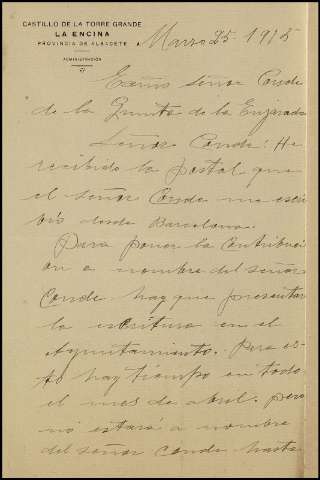 CASTILLO DE LA TORRE GRANDE
LA ENCINA
PROVINCIA DE ALBACETE A Marzo 25 1915
ADMINISTRACIÓN
Exmo Señor Conde
de la Quinta de la Enjarada
Señor Conde: He
recibido la postal que
el señor Conde me escri
bió desde Barcelona.
Para poner la contribuci
on a nombre del señor
Conde hay que presentar
la escritura en el
Ayuntamiento. Para es-
to hay tiempo en todo
el mes de abril. pero
no estará a nombre
del señor conde hasta